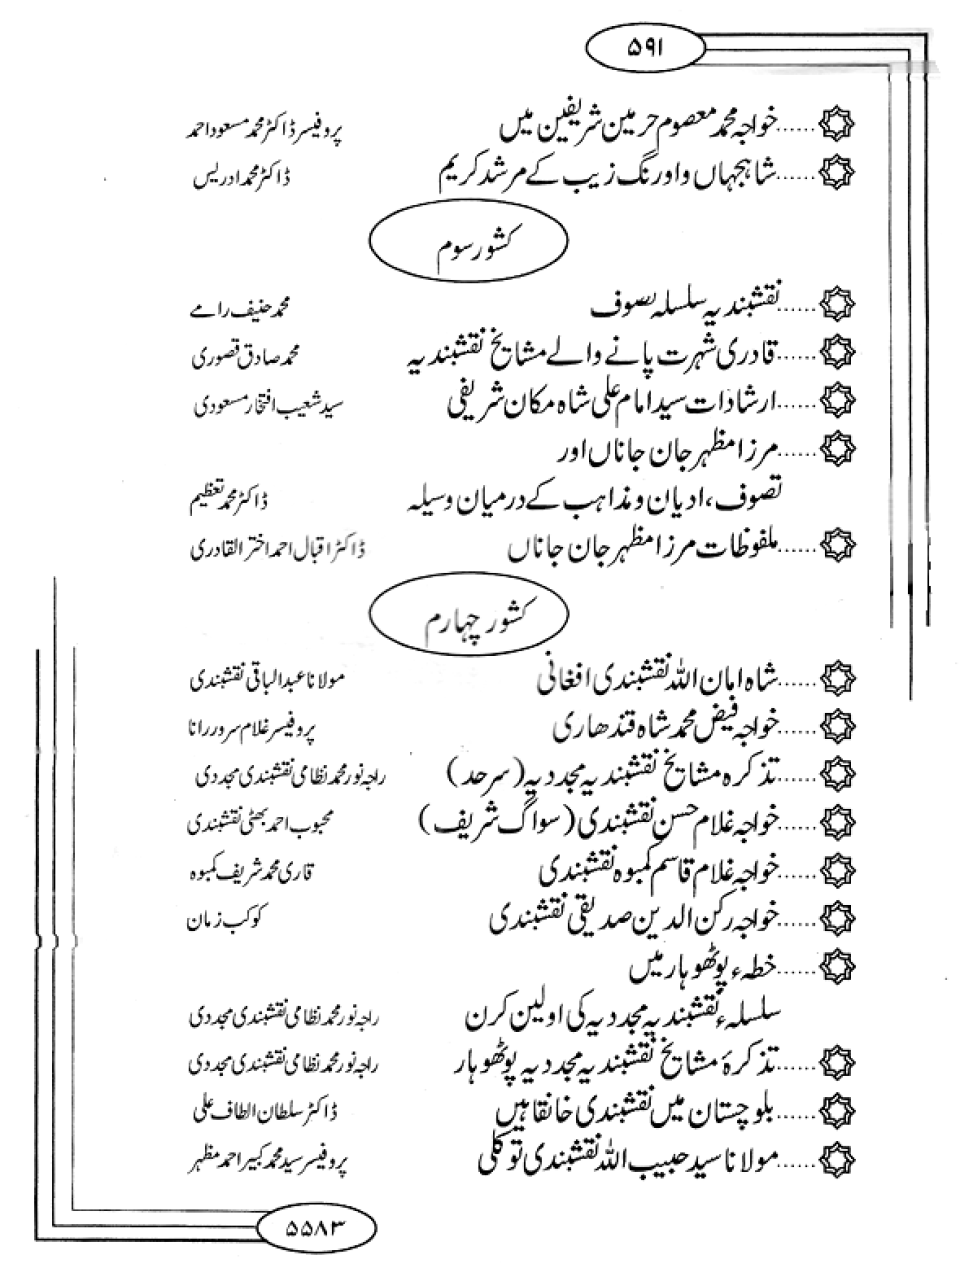 ۵۹۱
......خواجہ محمد معصوم حرمین شریفین میں پروفیسر ڈاکٹر محمد مسعود احمد
......شاہجہاں و اورنگ زیب کے مرشد کریم ڈاکٹر محمد ادریس
کشور سوم
......نقشبندیہ سلسلہ تصوف محمد حنیف رامے
......قادری شہرت پانے والے مشایخ نقشبندیہ محمد صادق قصوری
......ارشادات سید امام علی شاہ مکان شریفی سید شعیب افتخار مسعودی
......مرزا مظہر جان جاناں اور
تصوف، ادیان و مذاہب کے درمیان وسیلہ ڈاکٹر محمد تعظیم
......ملفوظات مرزا مظہر جان جاناں ڈاکٹر اقبال احمد اختر القادری
کشور چہارم
......شاہ امان اللہ نقشبندی افغانی مولانا عبد الباقی نقشبندی
......خواجہ فیض محمد شاہ قندھاری پروفیسر غلام سرور رانا
......تذکرہ مشایخ نقشبندیہ مجددیہ (سرحد) راجہ نور محمد نظامی نقشبندی مجددی
......خواجہ غلام حسن نقشبندی (سواگ شریف) محبوب احمد بھٹی نقشبندی
......خواجہ غلام قاسم کمبوہ نقشبندی قاری محمد شریف کمبوہ
......خواجہ رکن الدین صدیقی نقشبندی کوکب زمان
......خطہء پوٹھوہار میں
سلسلہء نقشبندیہ مجددیہ کی اولین کرن راجہ نور محمد نظامی نقشبندی مجددی
......تذکرۂ مشایخ نقشبندیہ مجددیہ پوٹھوہار راجہ نور محمد نظامی نقشبندی مجددی
......بلوچستان میں نقشبندی خانقاہیں ڈاکٹر سلطان الطاف علی
......مولانا سید حبیب اللہ نقشبندی توکلی پروفیسر سید محمد کبیر احمد مظہر
۵۵۸۳